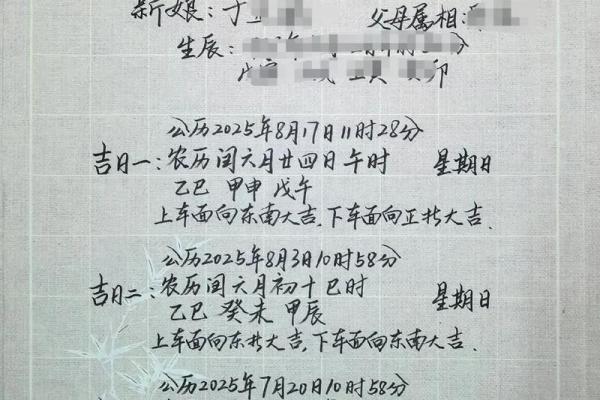 新娘：于 父母属相：
生辰： 分
戊寅 卯
公历2025年8月17日11时28分
吉日一：农历闰六月廿四日午时 星期日
乙巳 甲申 戊午
上车面向东南大吉，下车面向正北大吉．
公历2025年8月3日10时58分
吉日二：农历闰六月初十巳时 星期日
乙巳 癸未 甲辰
上车面向东北大吉，下车面向东南大吉．
公历2025年7月20日10时58分